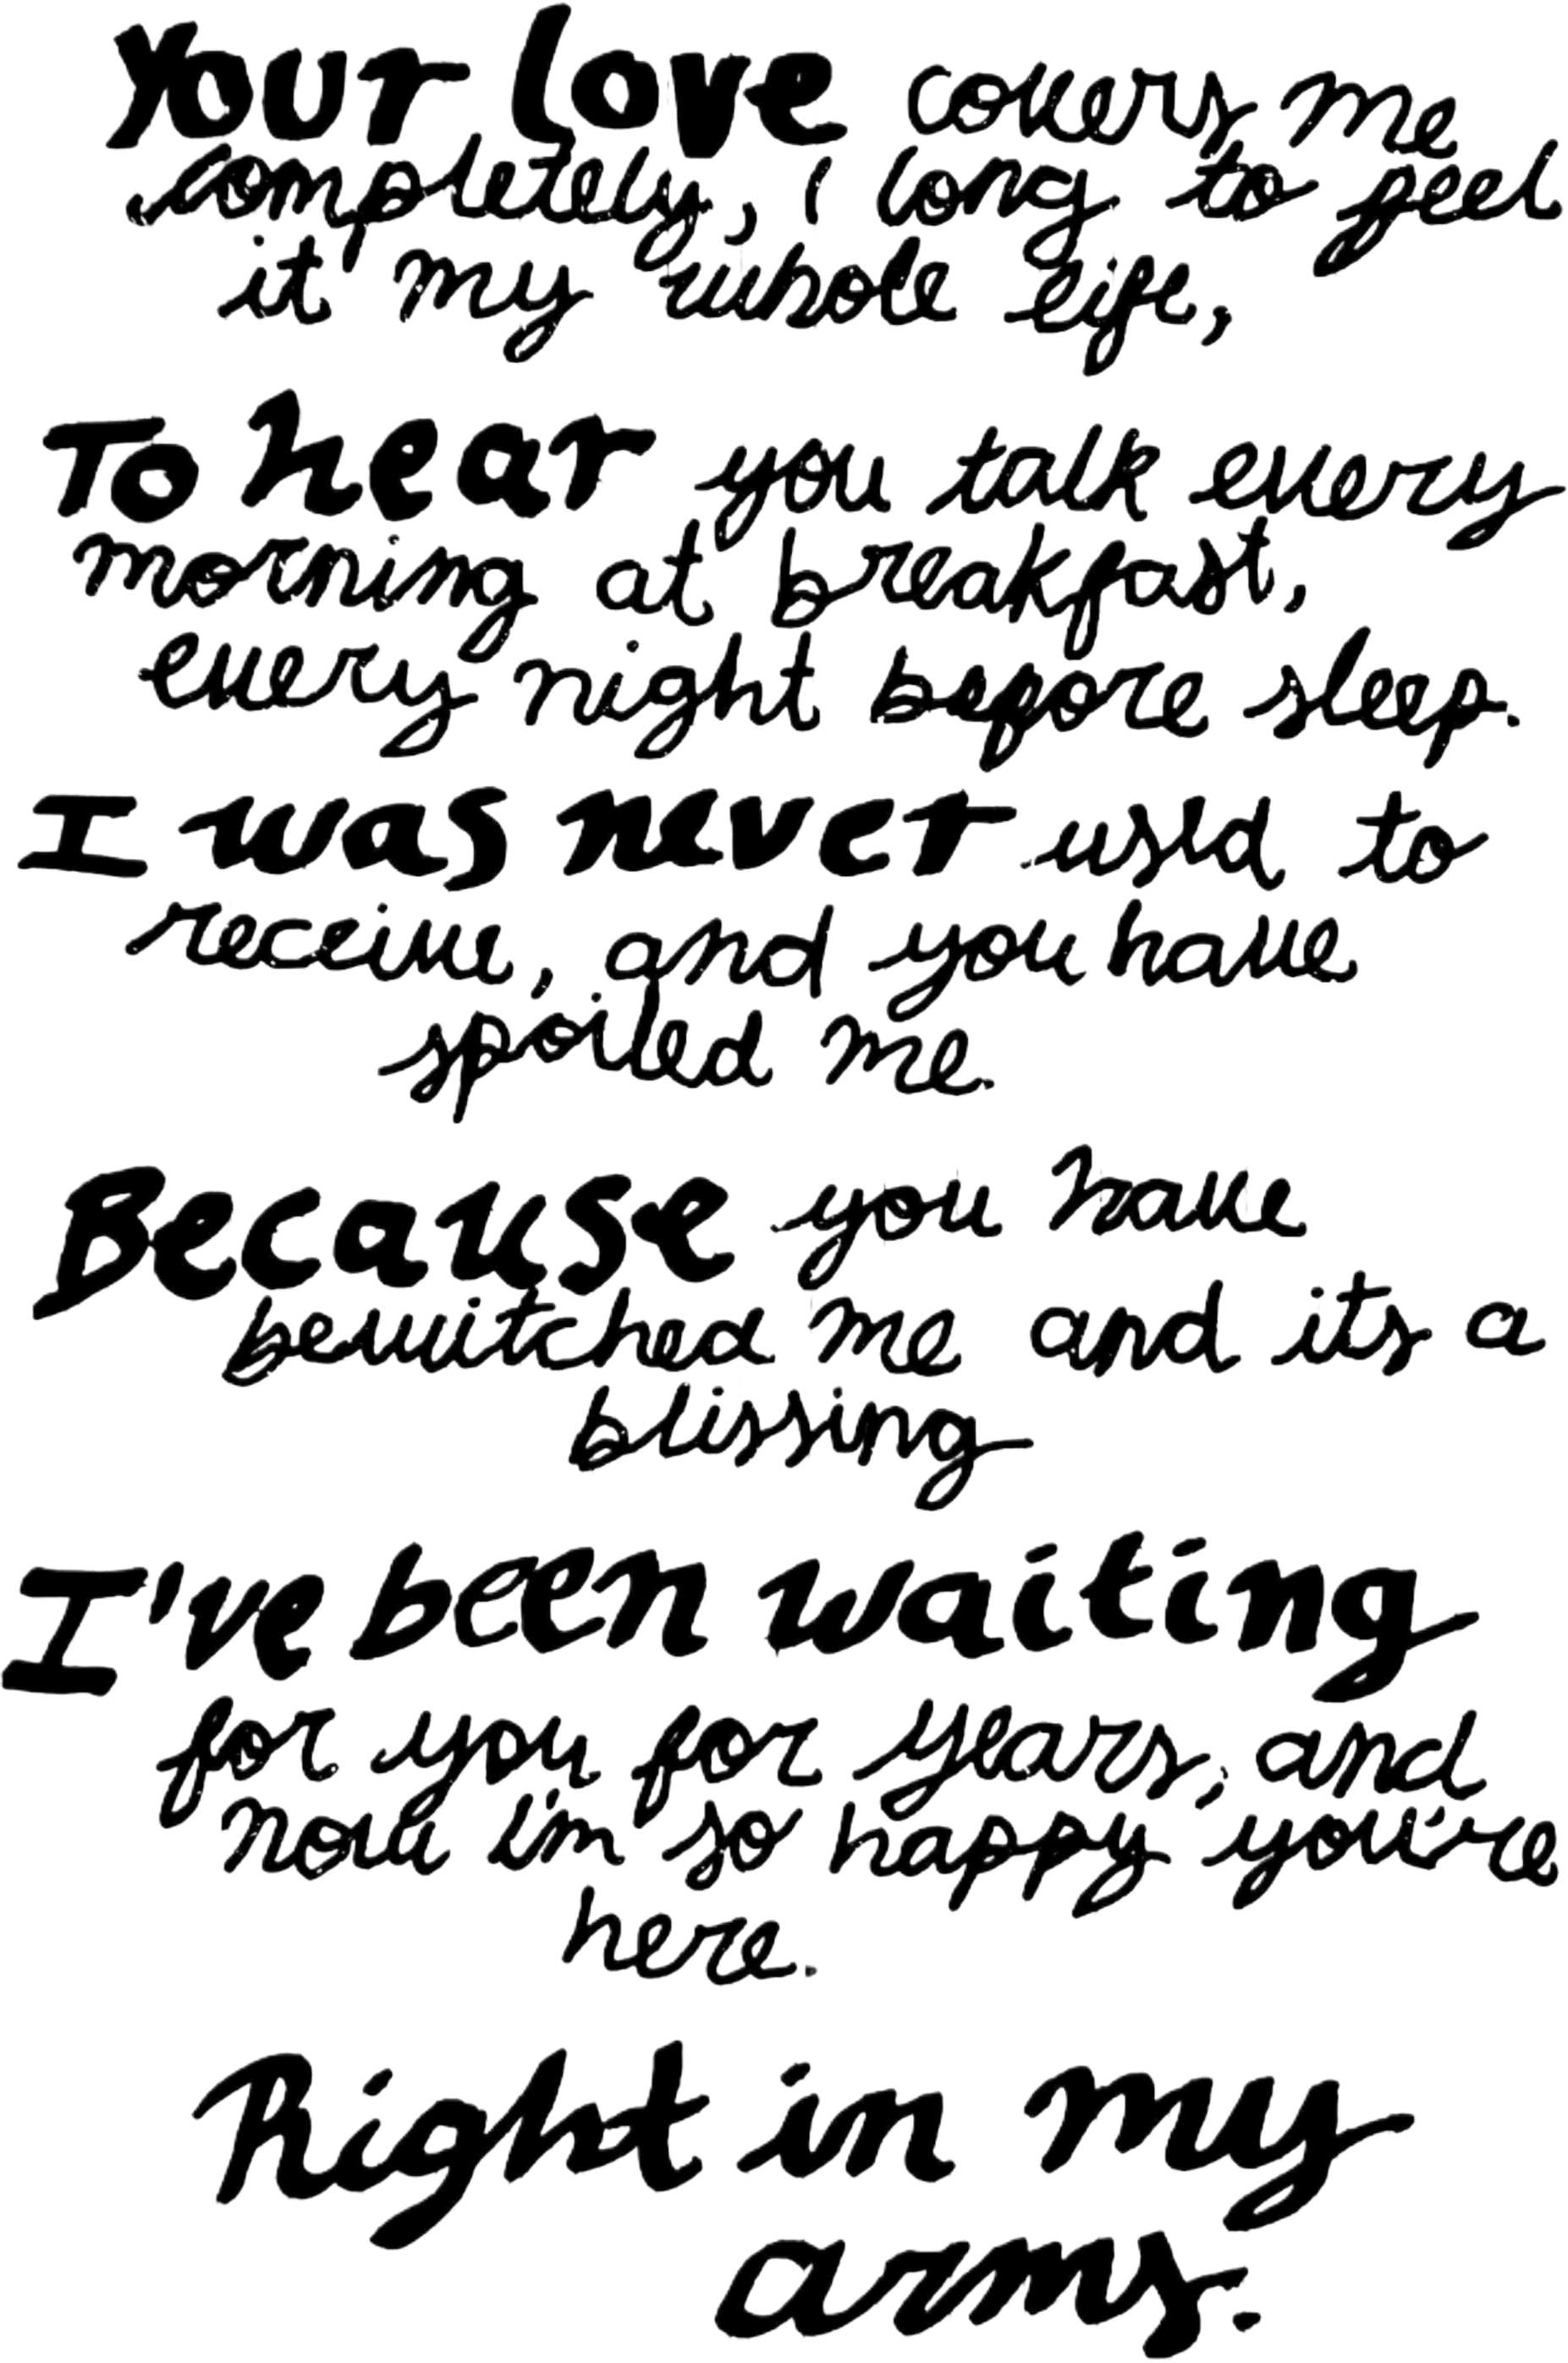 Your love covers me
completely, I long to feel
it my whole life,
To hear you talk every
morning at breakfast,
every night before sleep.
I was never used to
receive, and you have
spoiled me.
Because you have
bewitched me and its a
blissing
I've been waiting
for you for years, and
now i'm so happy you're
here.
Right in my
arms.